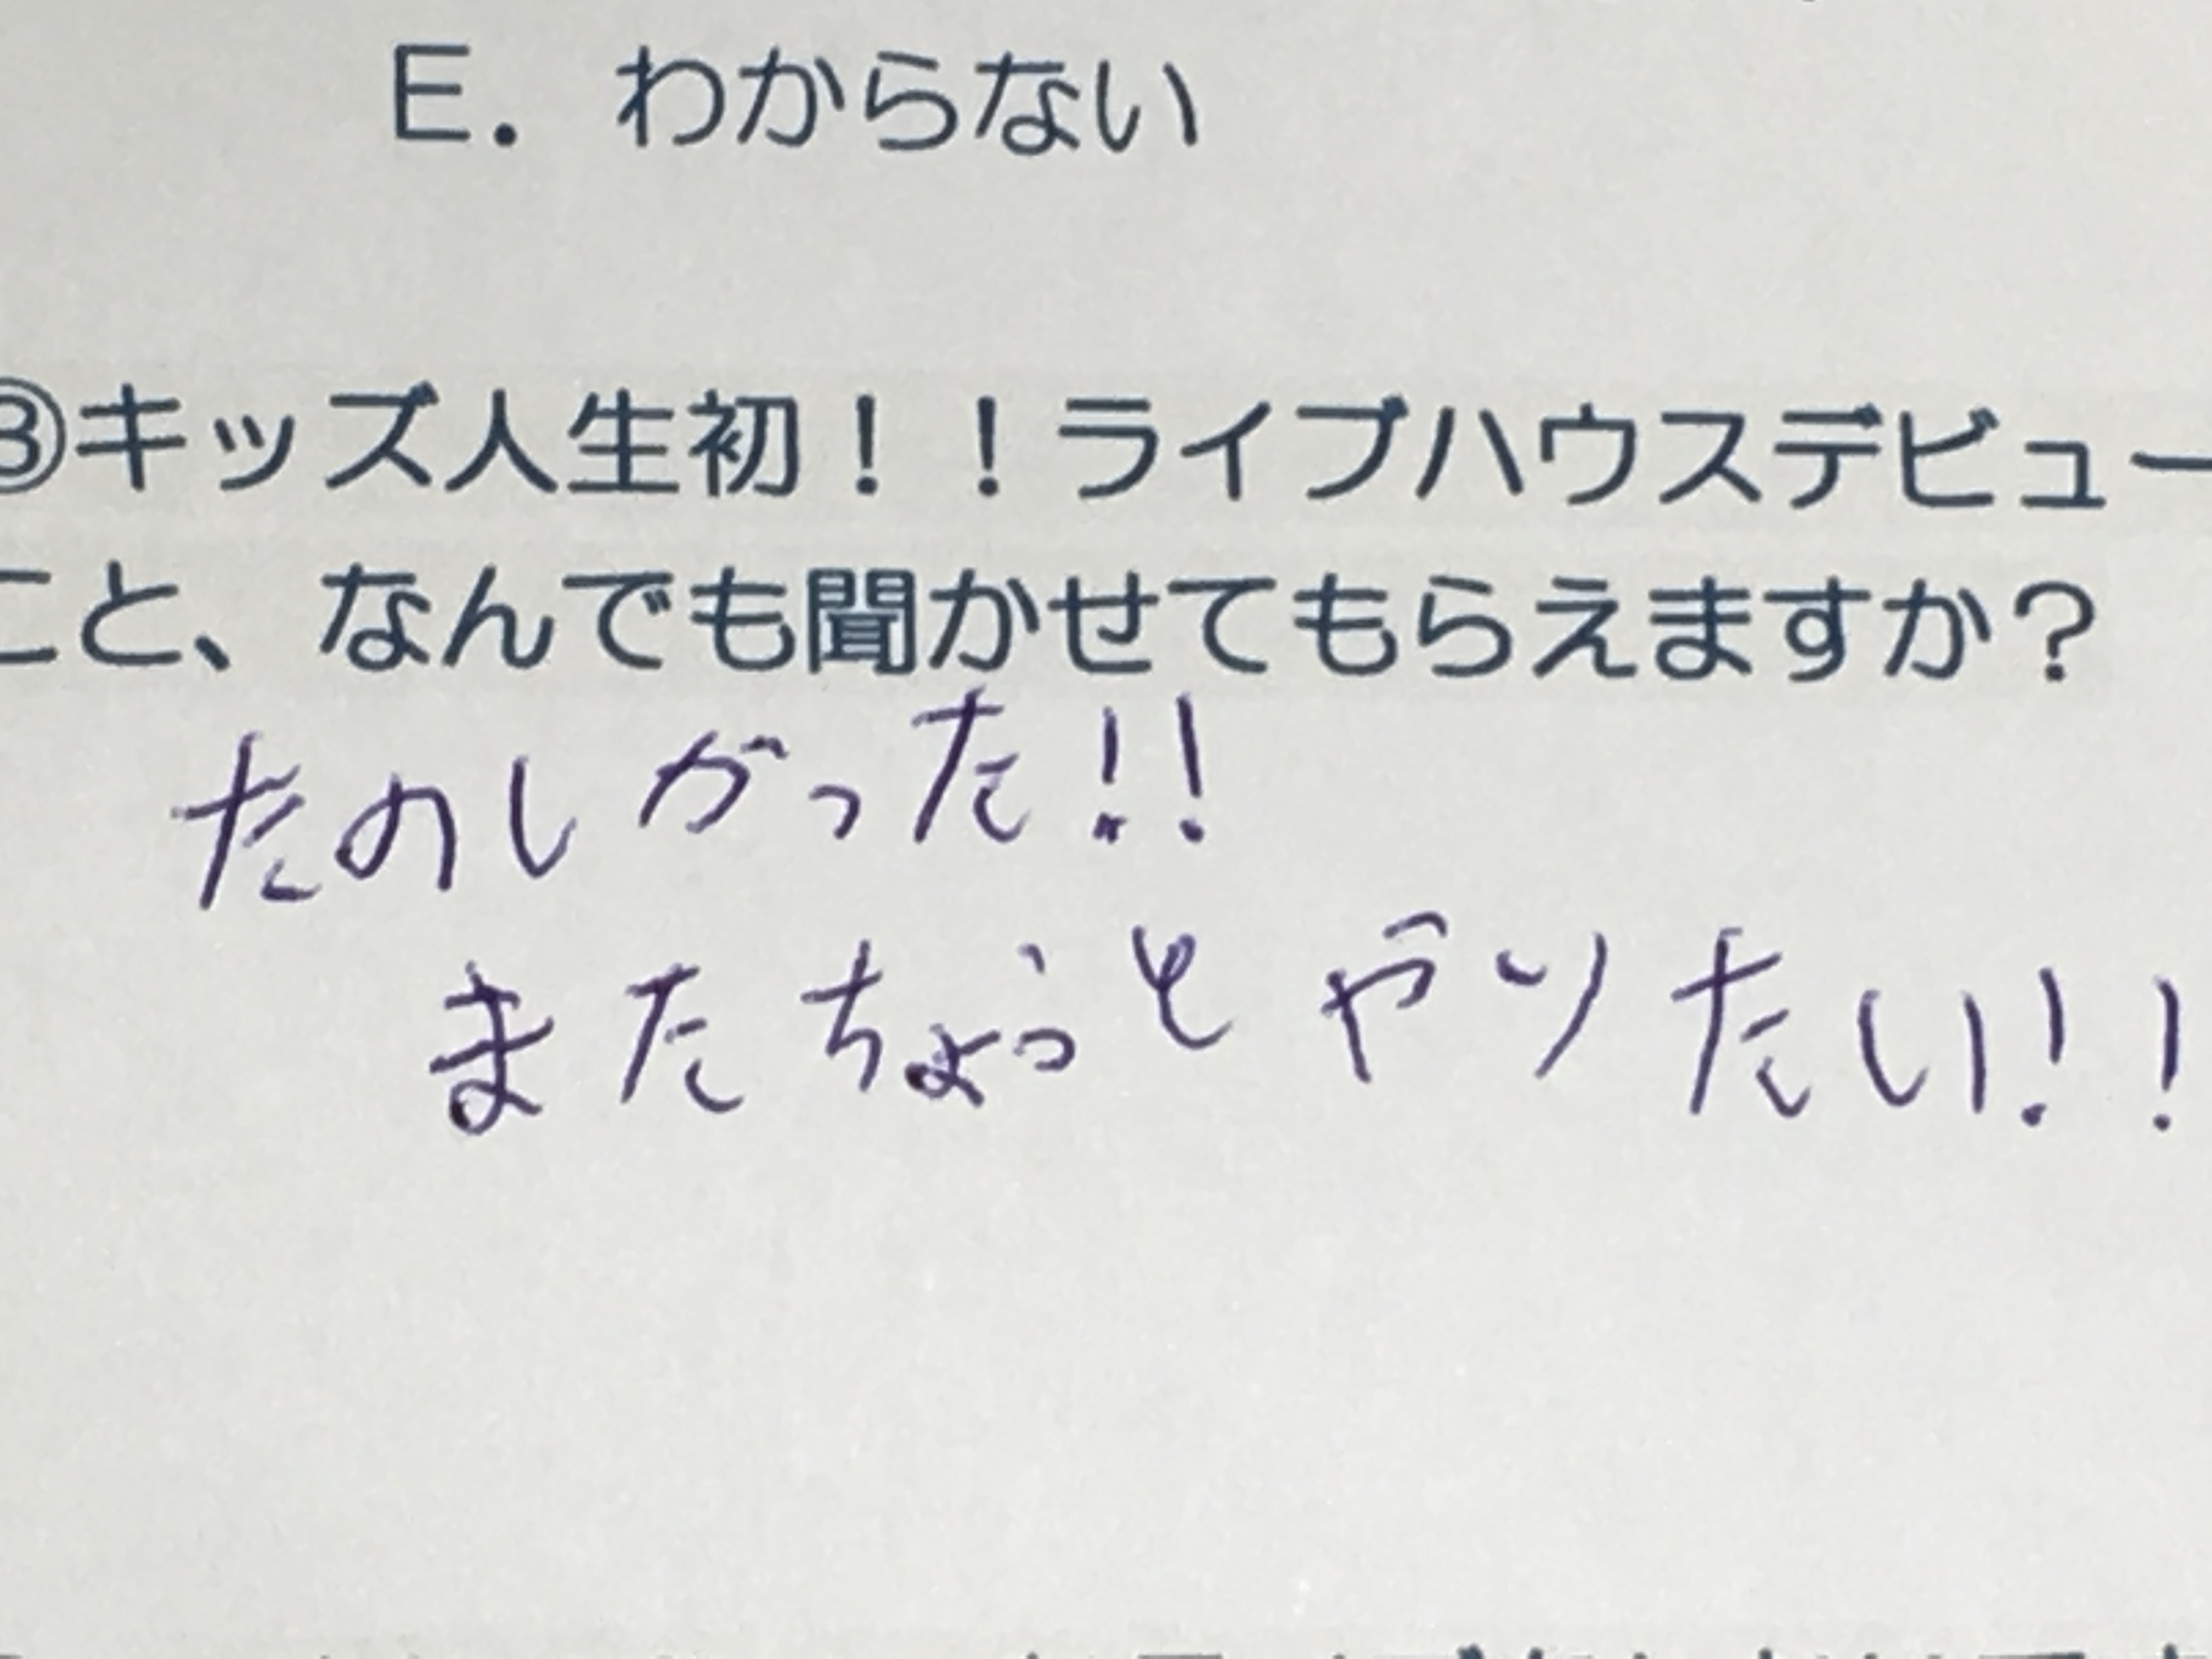 E. わからない
③キッズ人生初！！ライブハウスデビュー
こと、なんでも聞かせてもらえますか？
たのしかった!!
またちょっとやりたい!!